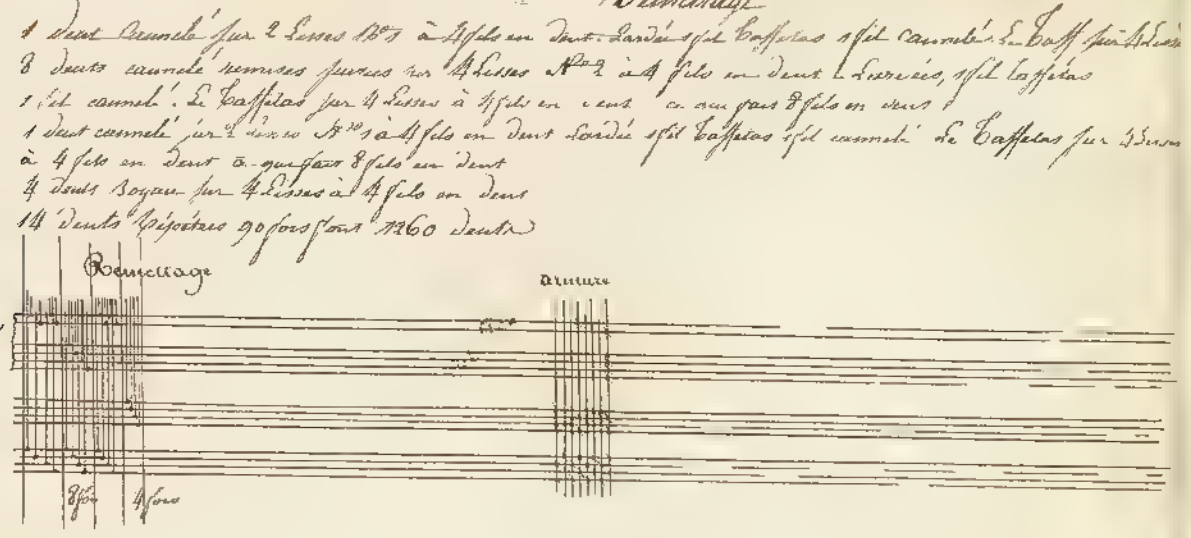 Remettage
1 dent cannelé sur 2 Lisses N° 1 à 4 fils en dent. Lardé 1 fil taffetas 1 fil cannelé. Le Taff sur 4 Lisses
8 dents cannelé remises suivies sur 4 Lisses N° 2 à 4 fils en dent Lardées, 1 fil taffetas
1 fil cannelé. Le Taffetas sur 4 Lisses à 4 fils en dent ce qui fait 8 fils en dent
1 dent cannelé sur 2 Lisses N° 1 à 4 fils en dent Lardée 1 fil taffetas 1 fil cannelé Le Taffetas sur 4 Lisses
à 4 fils en dent ce qui fait 8 fils en dent
4 dents sur 4 Lisses à 4 fils en dent
14 dents répétées 90 fois font 1260 dents
Remettage
armure
8 fois 4 fois